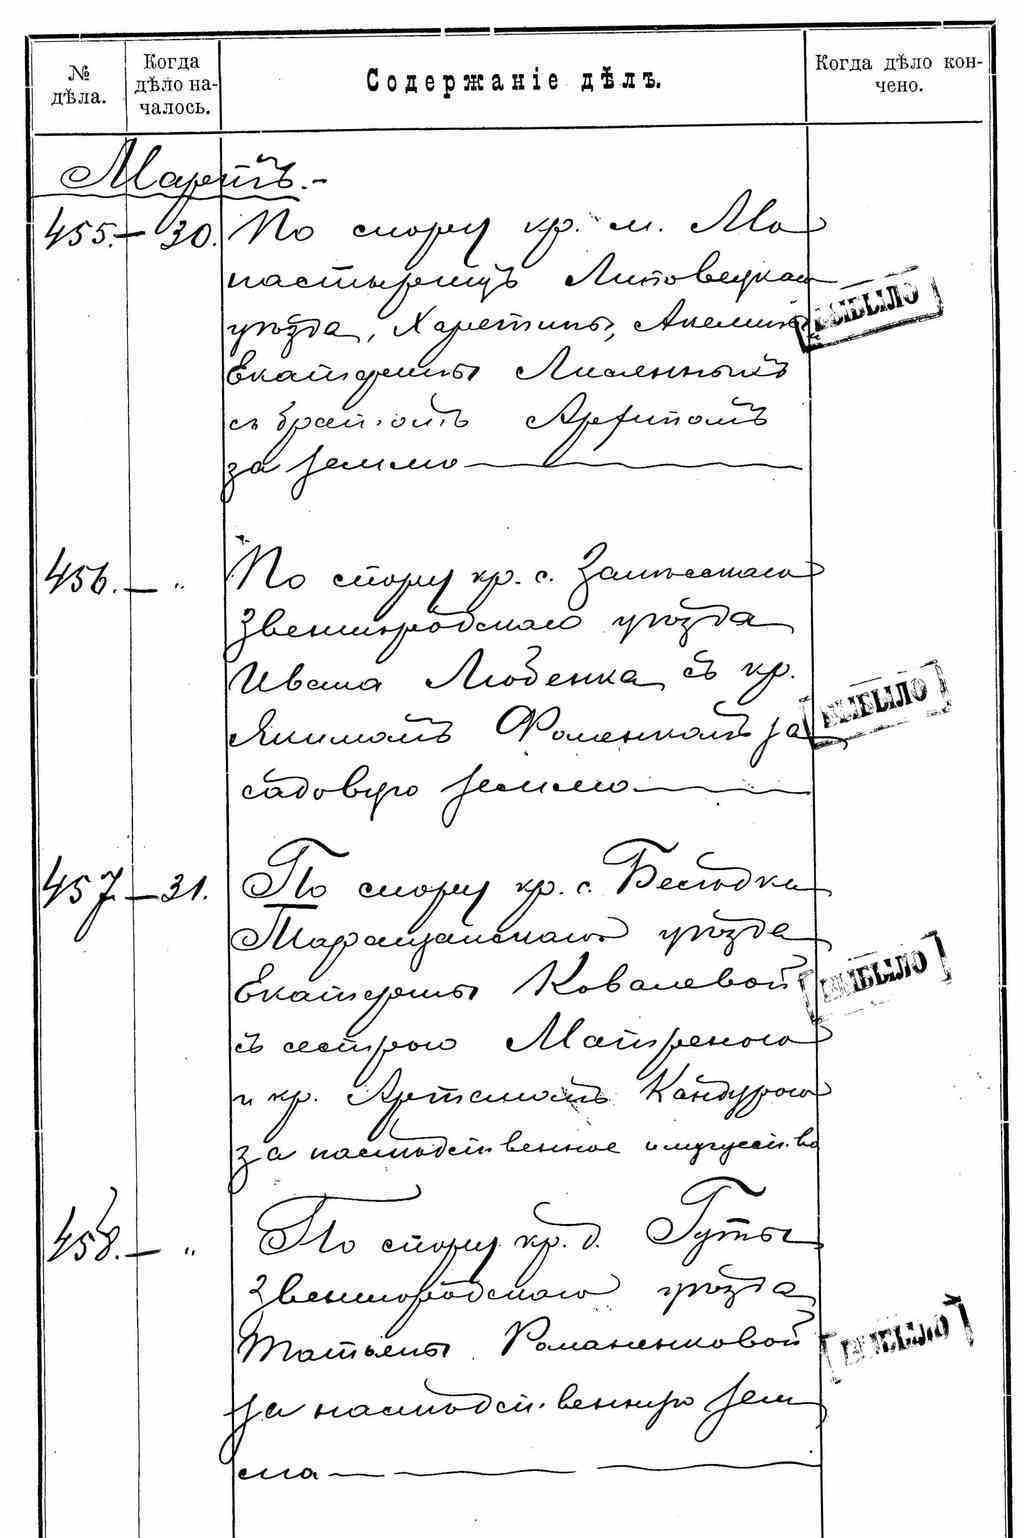 № дѣла.
Когда дѣло началось.
Содержаніе дѣлъ.
Когда дѣло кончено.
Мартъ.-
455.- 30. По спору кр. м. Мо
настырищъ Липовецкаго
уѣзда, Харитины, Акелины,
Екатерины Лисянныхъ
съ братомъ Архипомъ
за землю
456. - „ По спору кр. с. Залѣсскаго
Звенигородскаго уѣзда
Ивана Любенка съ кр.
Якимомъ Фоменкомъ за
садовую землю
457 - 31. По спору кр. с. Бесѣдки
Таращанскаго уѣзда
Екатерины Ковалевой
съ сестрою Матреною
и кр. Артемомъ Кандурою
за наслѣдственное имущество
458. - „ По спору кр. д. Гуты
Звенигородскаго уѣзда
Татьяны Романенковой
за наслѣдственную зем
лю
ВЫБЫЛО
ВЫБЫЛО
ВЫБЫЛО
ВЫБЫЛО